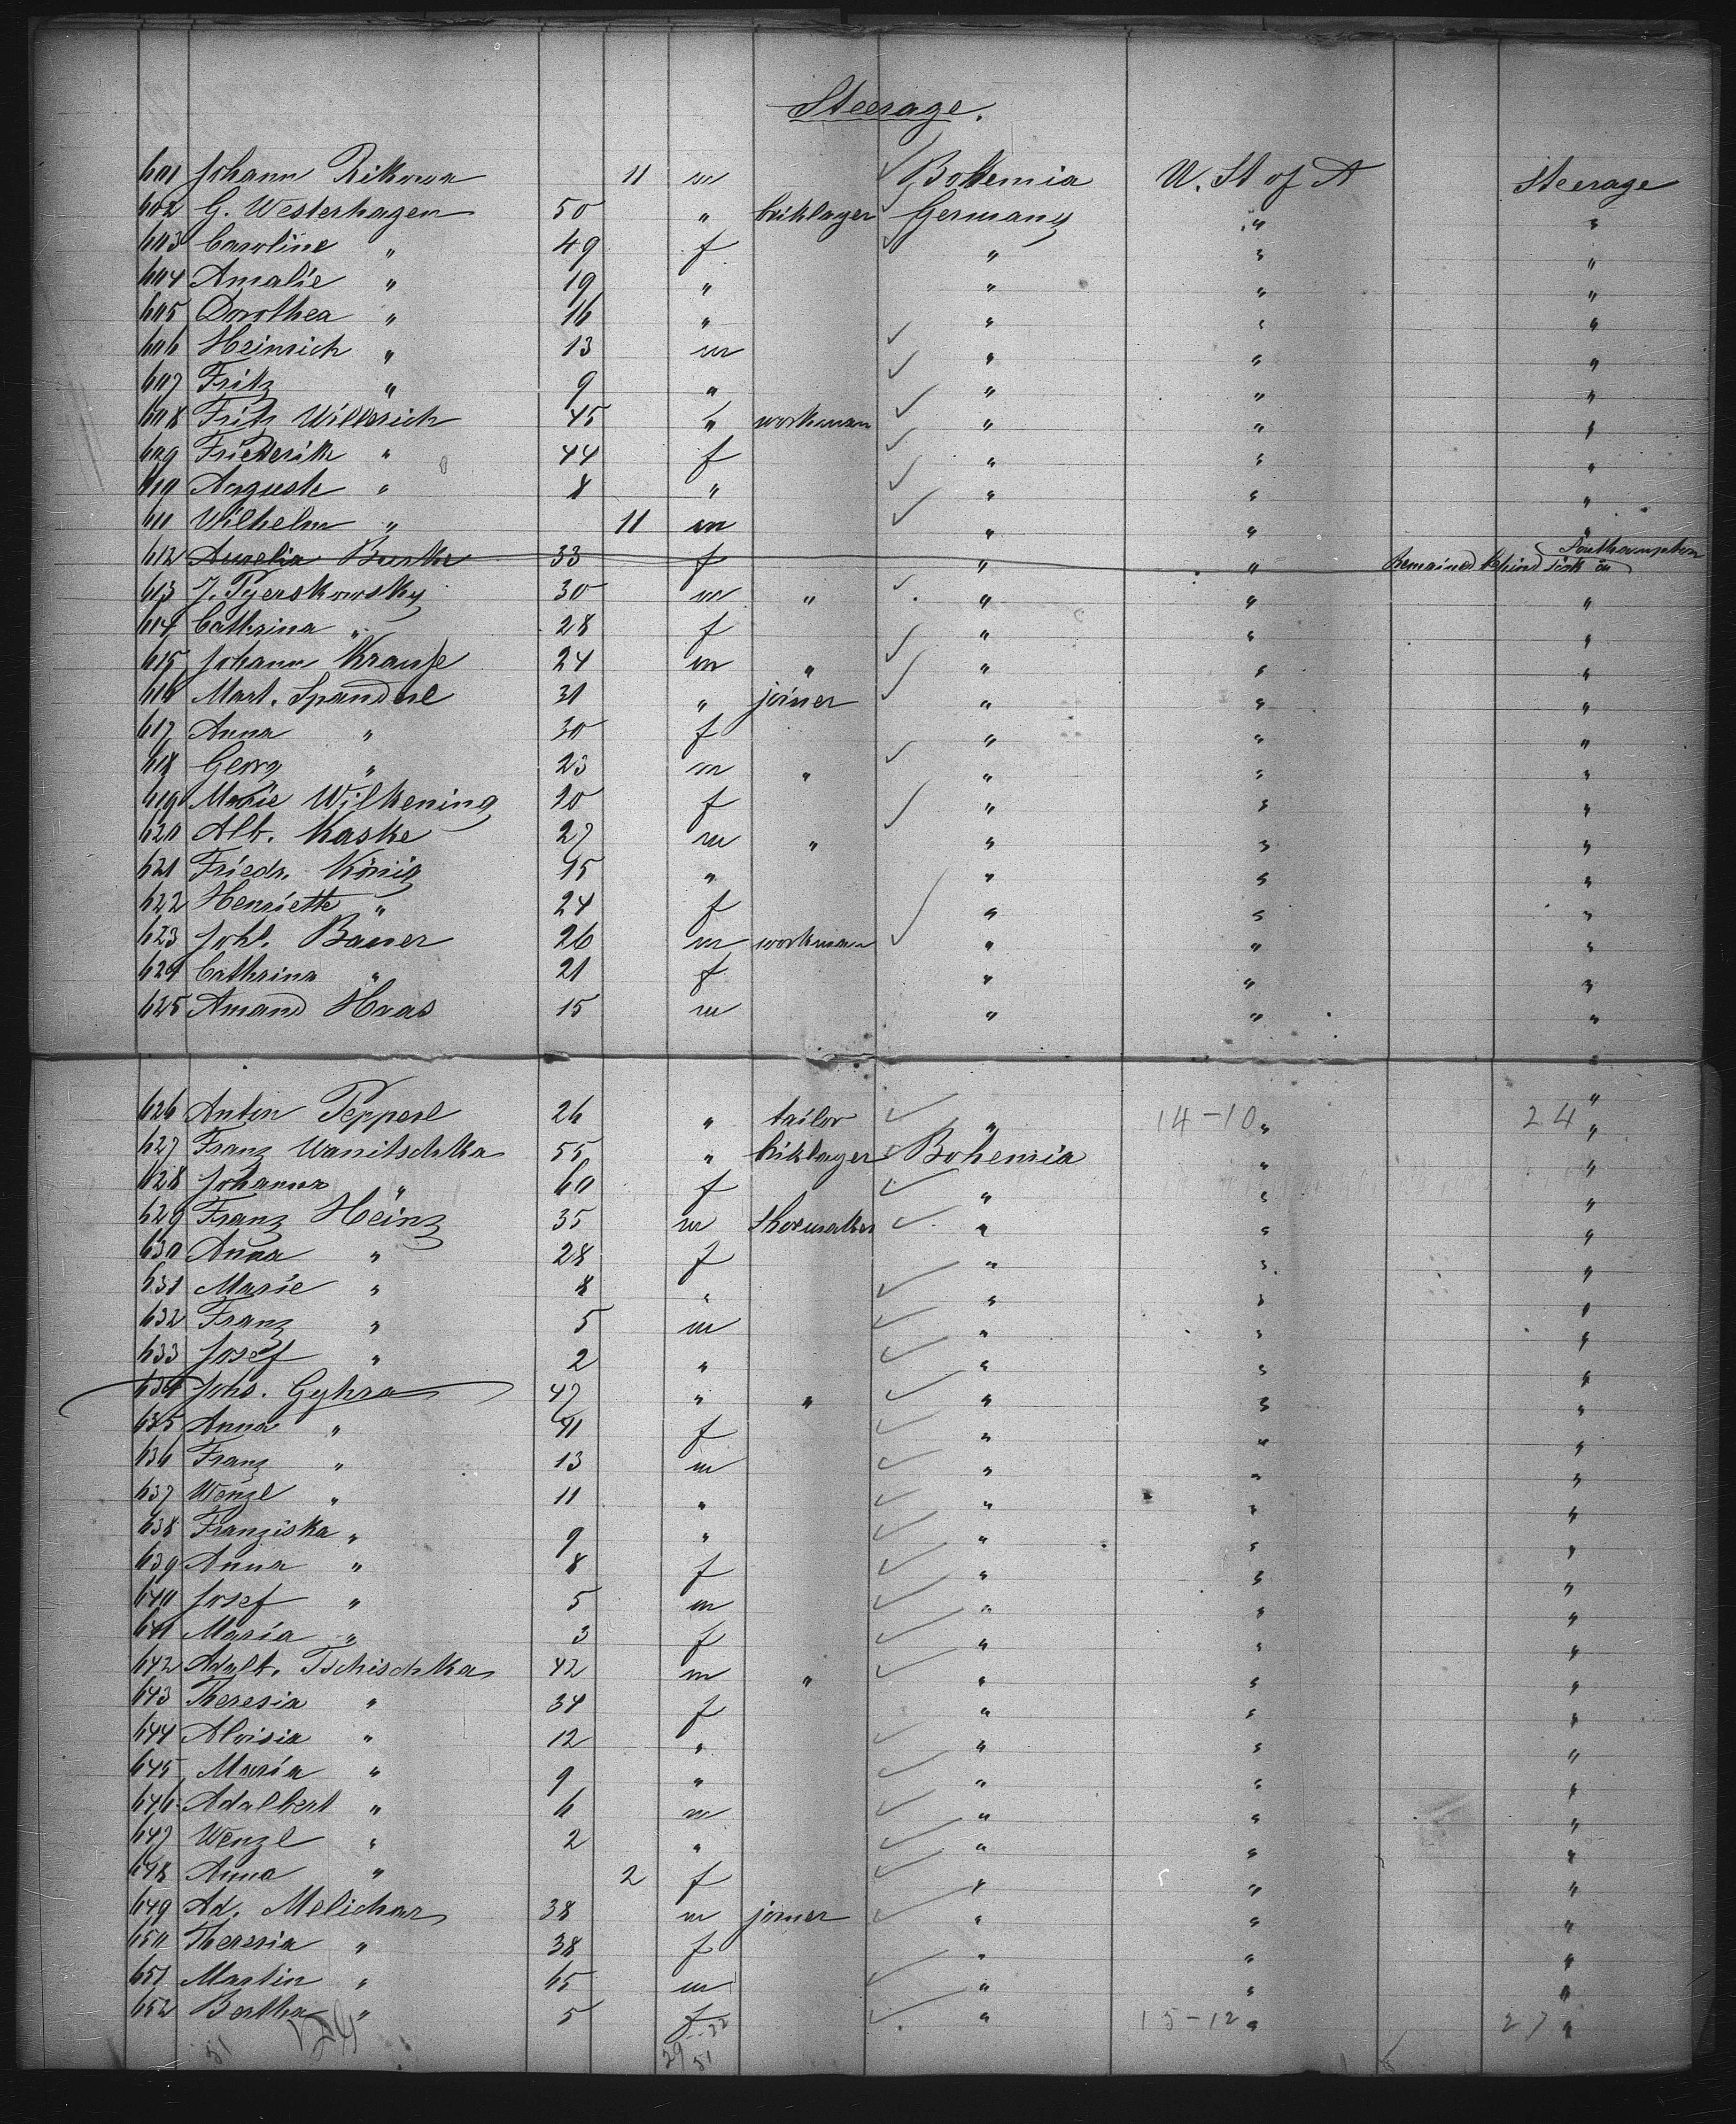 Steerage.
601 Johann Rikowa 11 m Bohemia U. St of A Steerage
602 G. Westerhagen 50 " briklayer Germany " "
603 Caroline " 49 f " " "
604 Amalie " 19 " " " "
605 Dorothea " 16 " " " "
606 Heinrich " 13 m " " "
607 Fritz " 9 " " " "
608 Fritz Willerich 45 " workman " " "
609 Friederik " 44 f " " "
610 Auguste " 8 " " " "
611 Wilhelm " 11 m " " "
612 Aurelia Burke 33 f " " Remained behind sick in Southampton
613 J. Pyerskowsky 30 m " " " "
614 Cathrina " 28 f " " "
615 Johann Krauſe 24 m " " " "
616 Mart. Spanderl 31 " joiner " " "
617 Anna " 30 f " " "
618 Georg " 23 m " " " "
619 Marie Wilkening 20 f " " "
620 Alb. Kaske 27 m " " " "
621 Friedr. König 15 " " " "
622 Henriette " 24 f " " "
623 Johl. Bauer 26 m workman " " "
624 Cathrina " 21 f " " "
625 Amand Haas 15 m " " "
626 Anton Pepperl 26 " tailor " 14-10 " 24 "
627 Franz Wanitschka 55 " briklayer Bohemia " "
628 Johanna " 60 f " " "
629 Franz Heinz 35 m shoemaker " " "
630 Anna " 28 f " " "
631 Marie " 8 " " " "
632 Franz " 5 m " " "
633 Josef " 2 " " " "
634 Johs. Gyhra 47 " " " " "
635 Anna " 41 f " " "
636 Franz " 13 m " " "
637 Wenzl " 11 " " " "
638 Franziska " 9 " " " "
639 Anna " 8 f " " "
640 Josef " 5 m " " "
641 Maria " 3 f " " "
642 Adalb. Tschischka 42 m " " " "
643 Theresia " 34 f " " "
644 Aloisia " 12 " " " "
645 Maria " 9 " " " "
646 Adalbert " 6 m " " "
647 Wenzl " 2 " " " "
648 Anna " 2 f " " "
649 Ad. Melichar 38 m joiner " " "
650 Theresia " 38 f " " "
651 Martin " 65 m " " "
652 Bertha " 5 f " 15-12 " 27 "
51 29-22
51